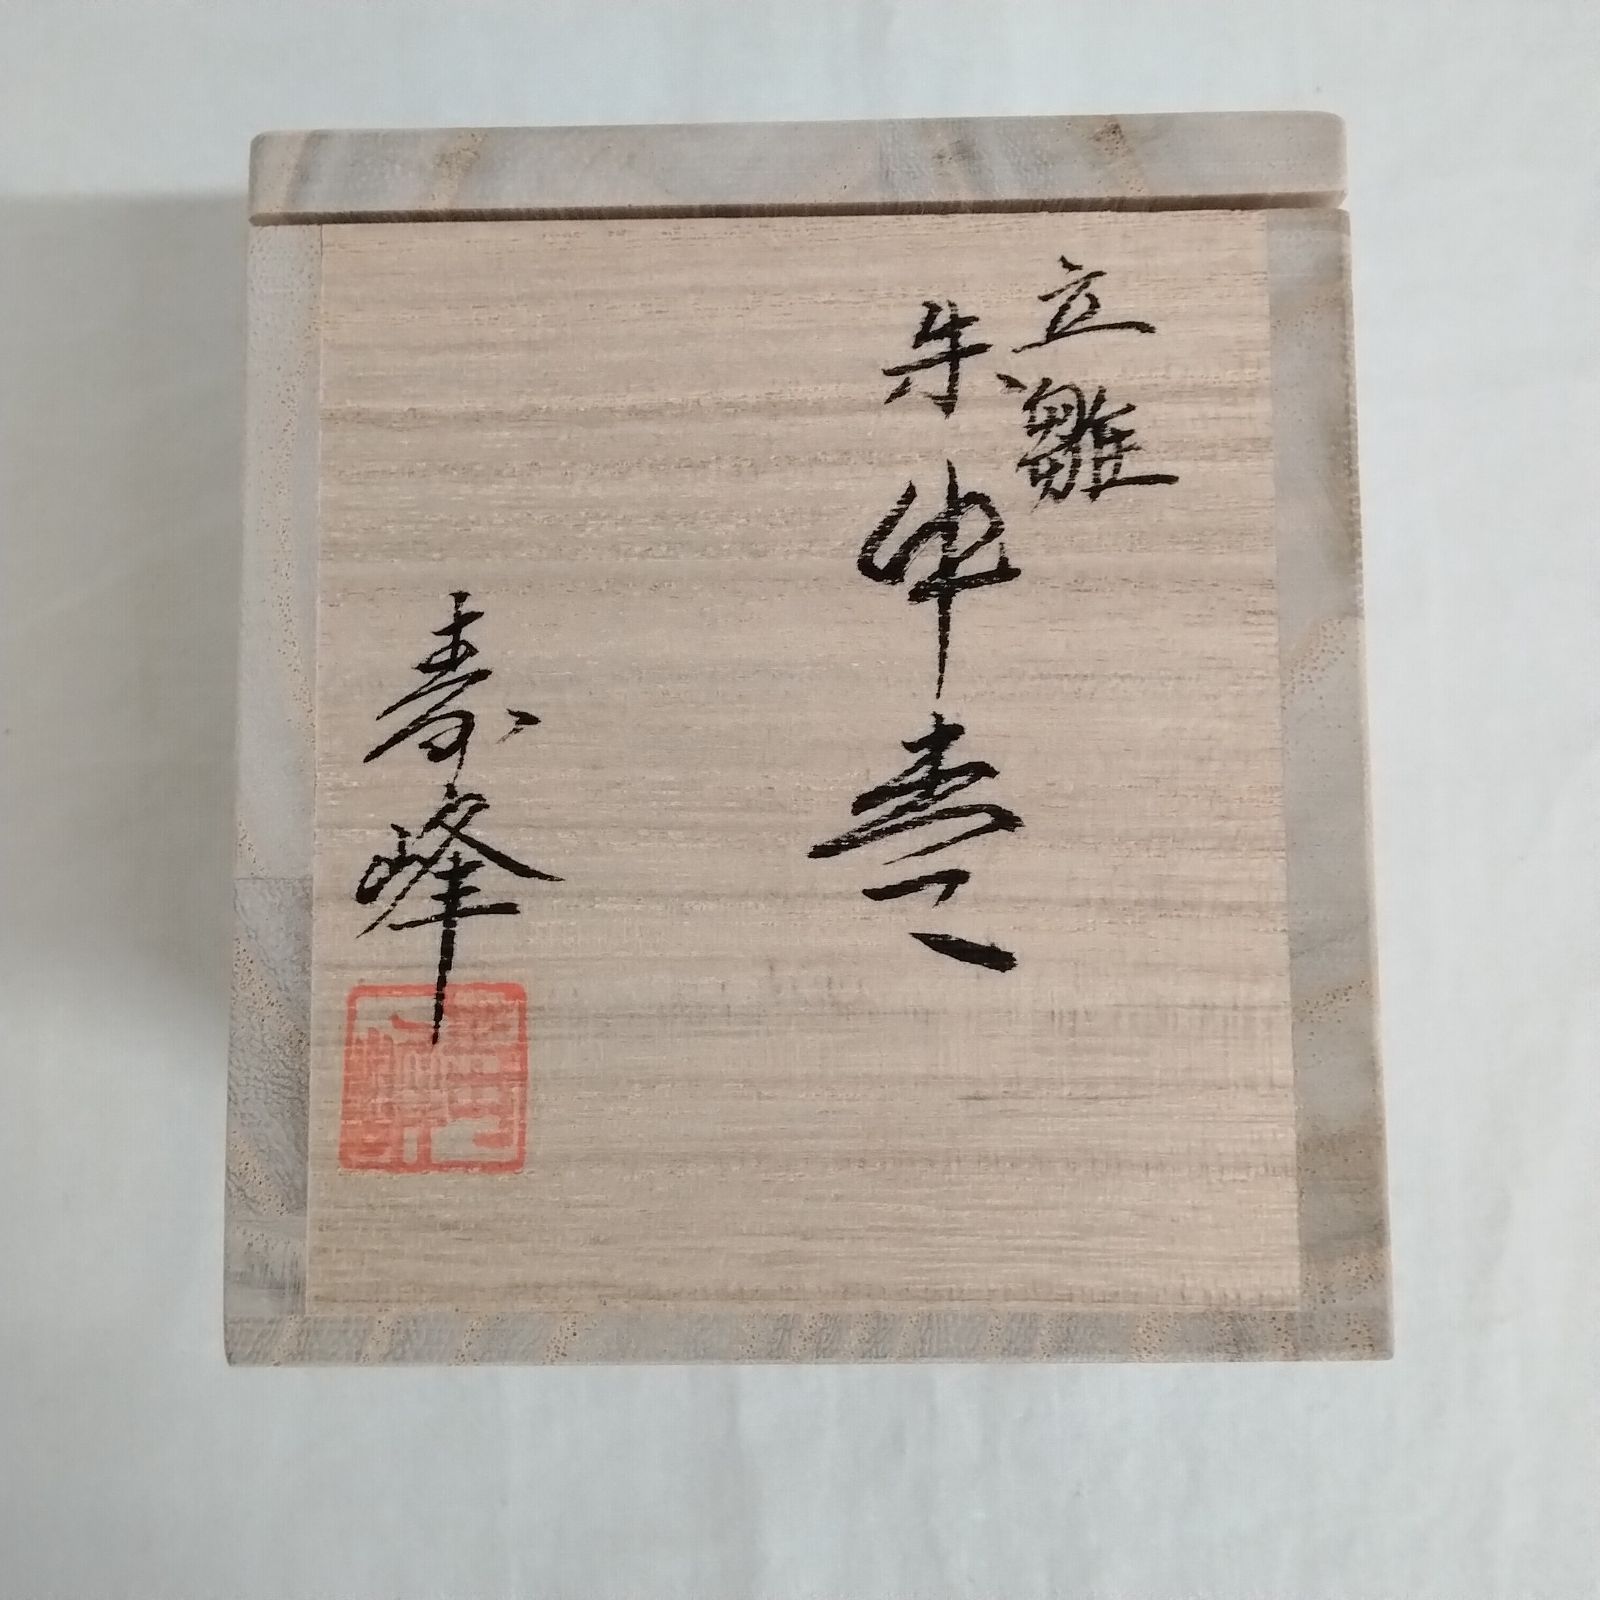 立雛
朱中棗
寿峰